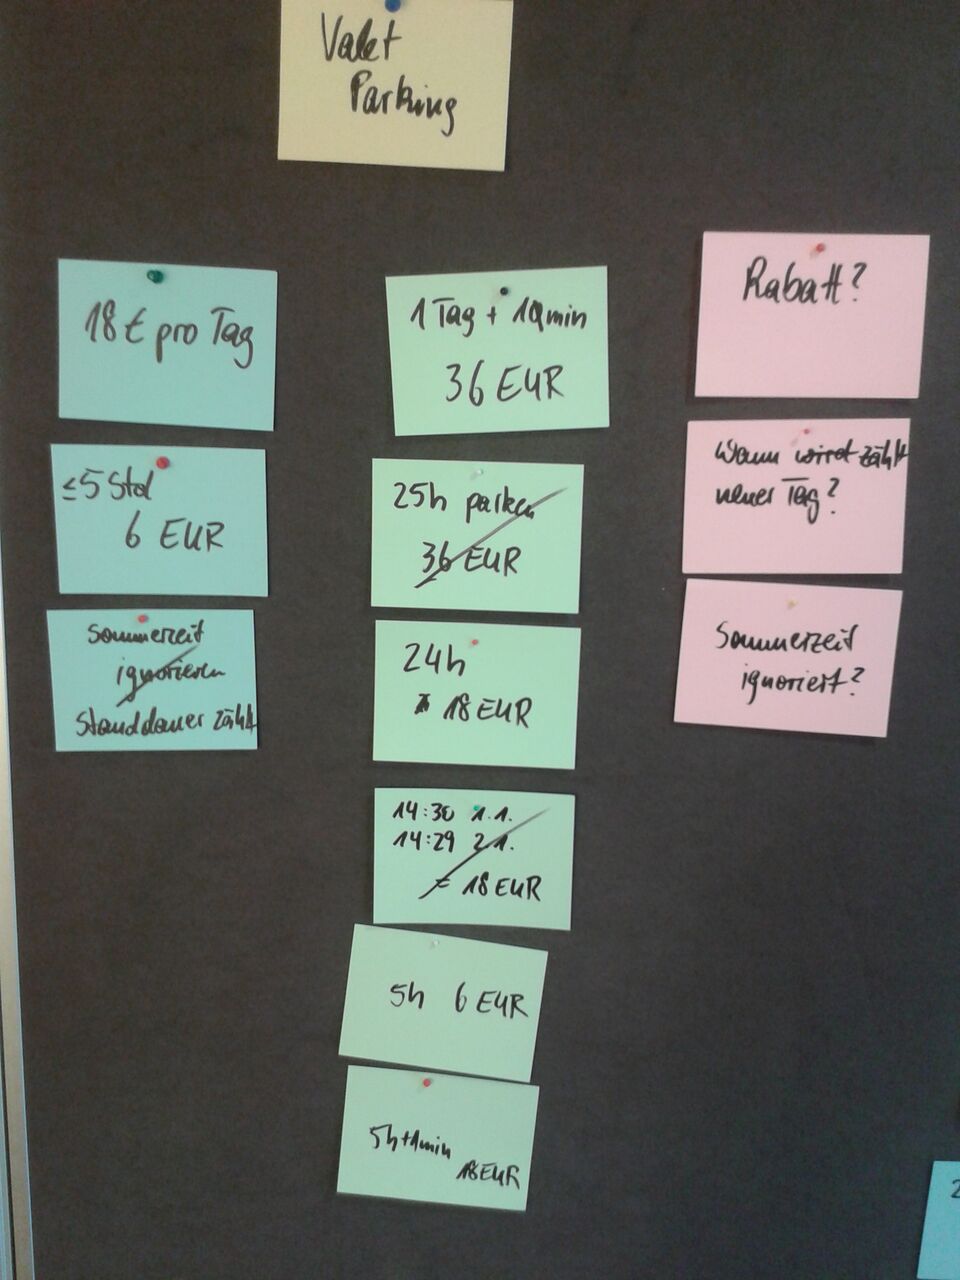 Valet
Parking
18 € pro Tag
≤5 Std
6 EUR
Sommerzeit
ignorieren
Standdauer zählt
1 Tag + 1 min
36 EUR
25h parken
36 EUR
24h
18 EUR
14:30 1.1.
14:29 2.1.
= 18 EUR
5h 6 EUR
5h+1min
18 EUR
Rabatt?
Wann wird zählt
neuer Tag?
Sommerzeit
ignoriert?
2